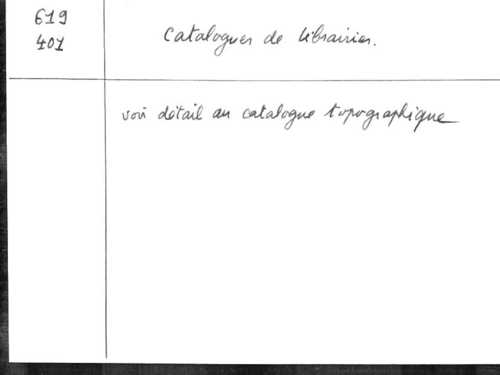 619
401
Catalogues de librairies.
voir détail au catalogue topographique